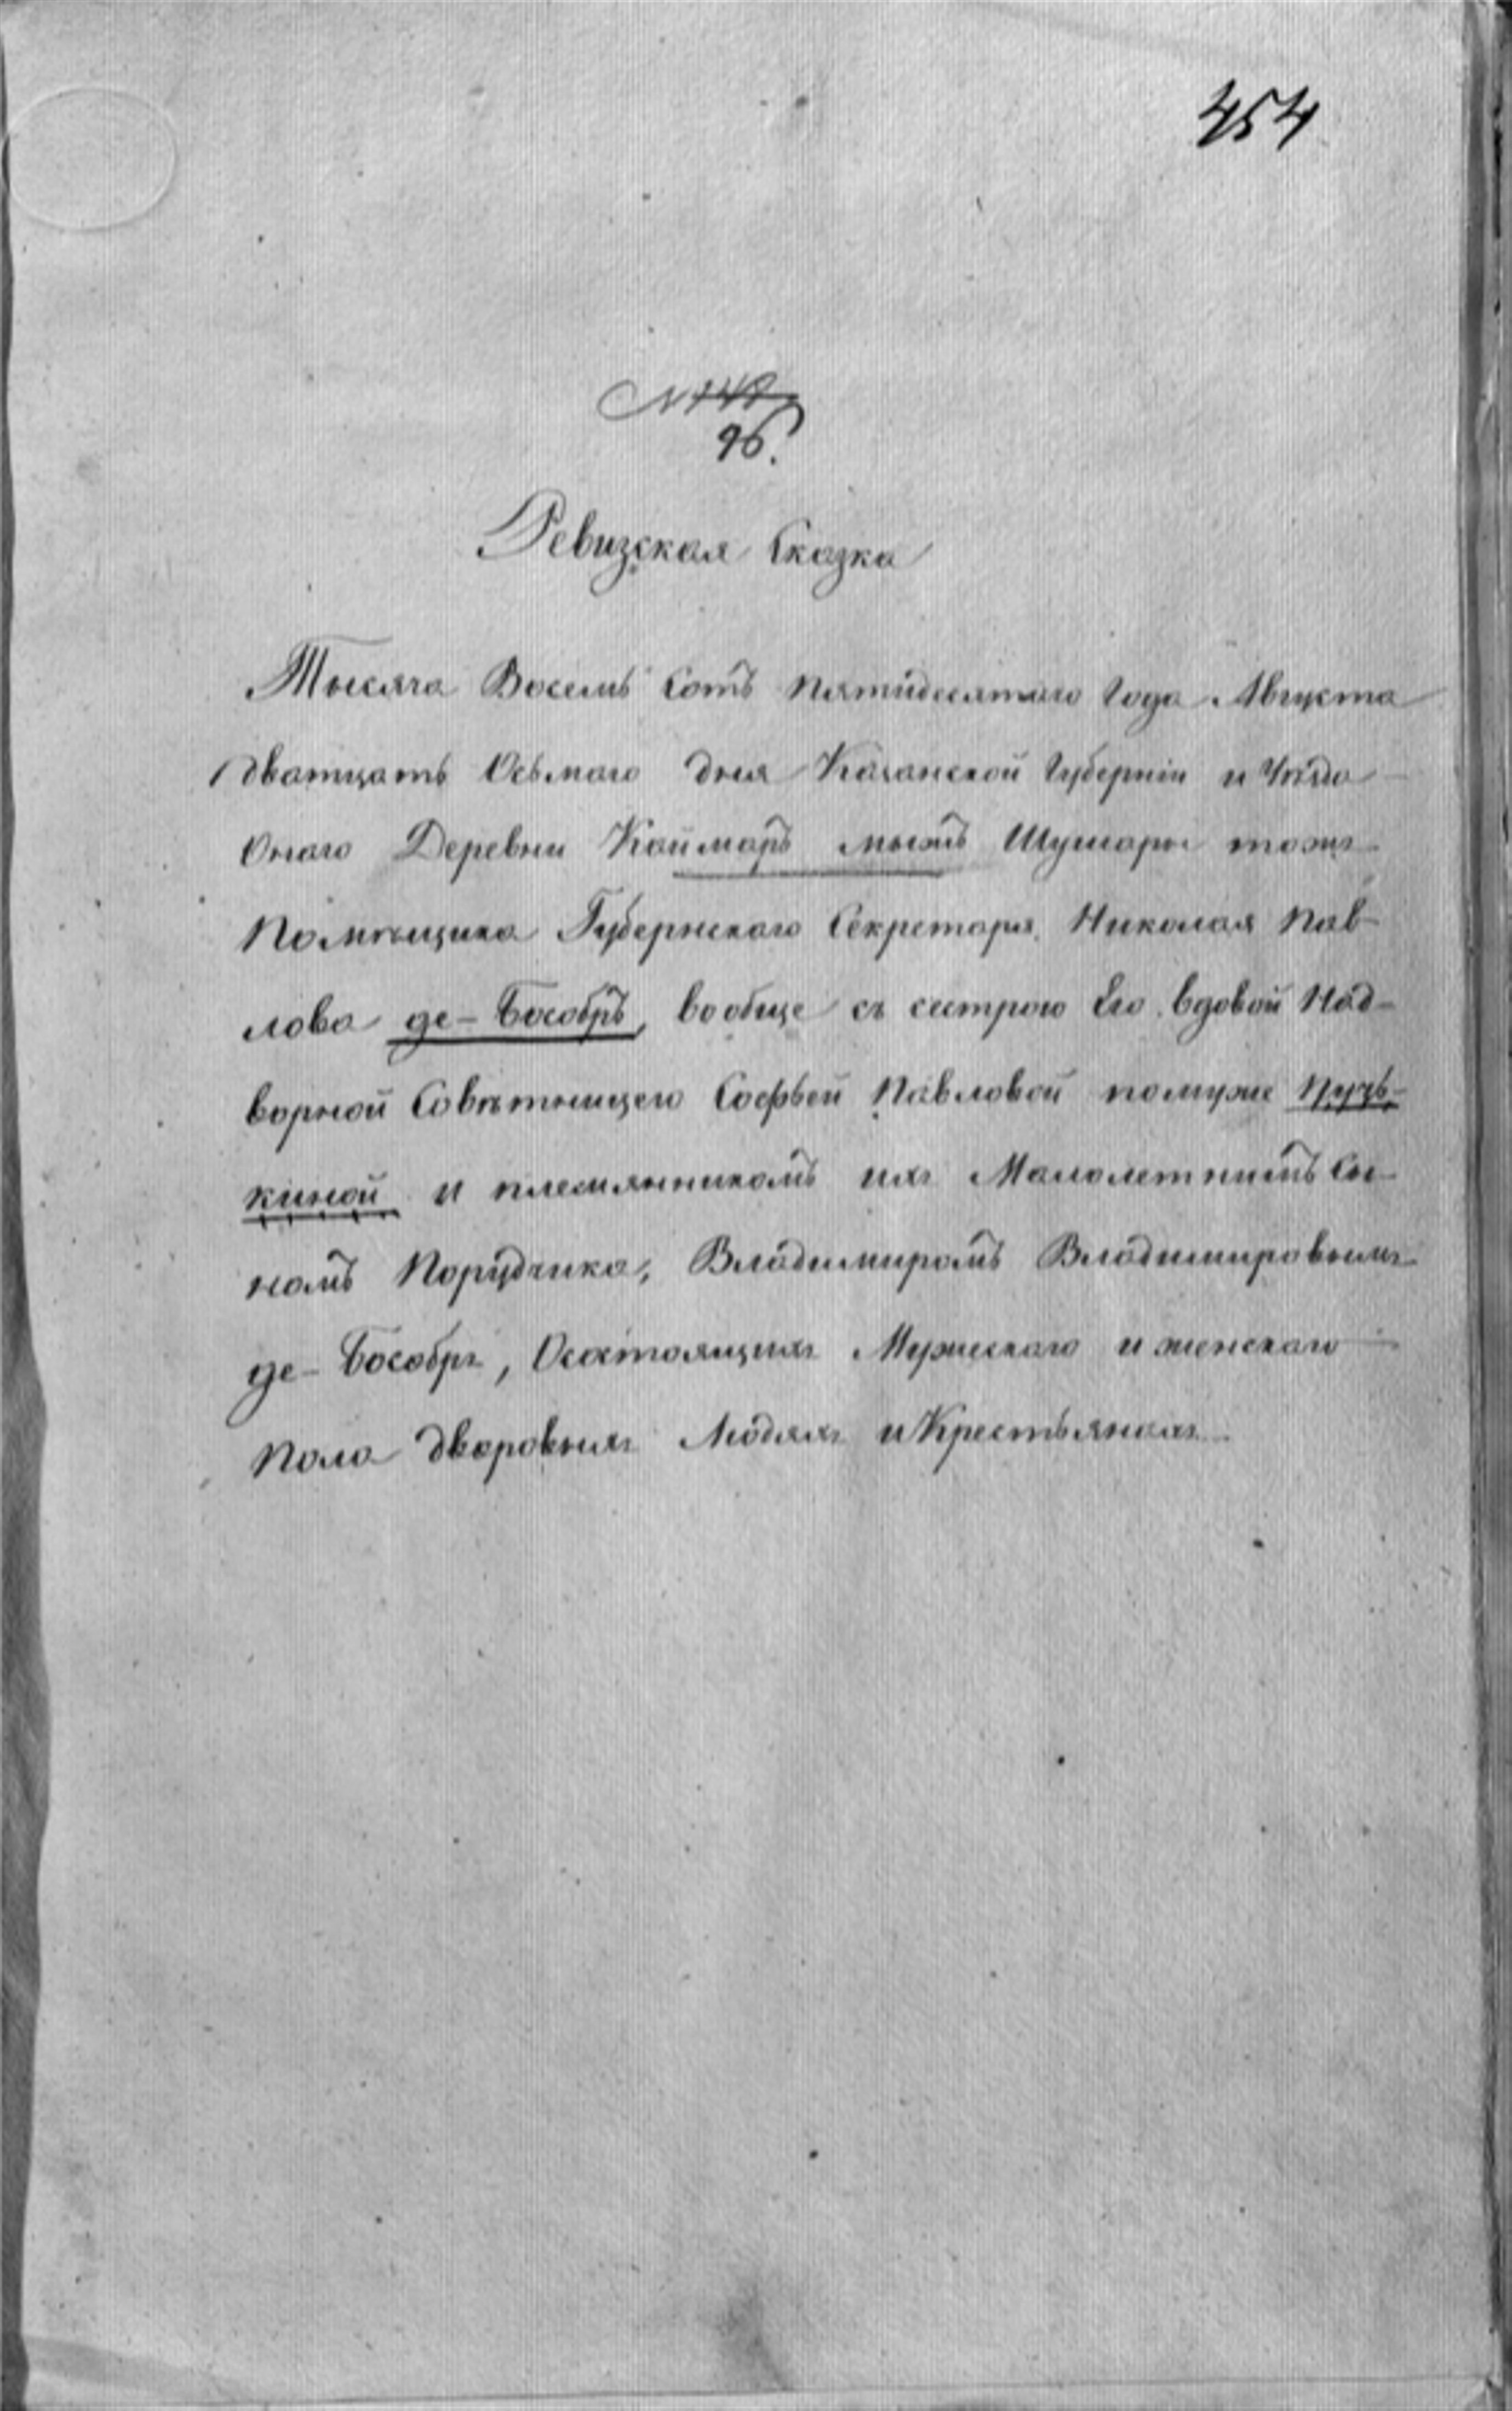 454
№
96.
Ревизская Сказка
Тысяча Восемь Сотъ пятидесятаго Года Августа
дватцать Осьмаго дня Казанской Губерніи и Уѣзда
Онаго Деревни Каймаръ мысъ Шушары тожъ
Помѣщика Губернскаго Секретаря Николая Пав-
лова де-Бособръ, вообще съ сестрою Его вдовой Над-
ворной Совѣтницею Софьей Павловой по мужѣ Пузь-
киной и племянникомъ ихъ Малолетнимъ Сы-
номъ Порудчика, Владимиромъ Владимировымъ
де-Бособръ, О состоящихъ Мужескаго и женскаго
пола дворовыхъ Людяхъ и Крестьянахъ